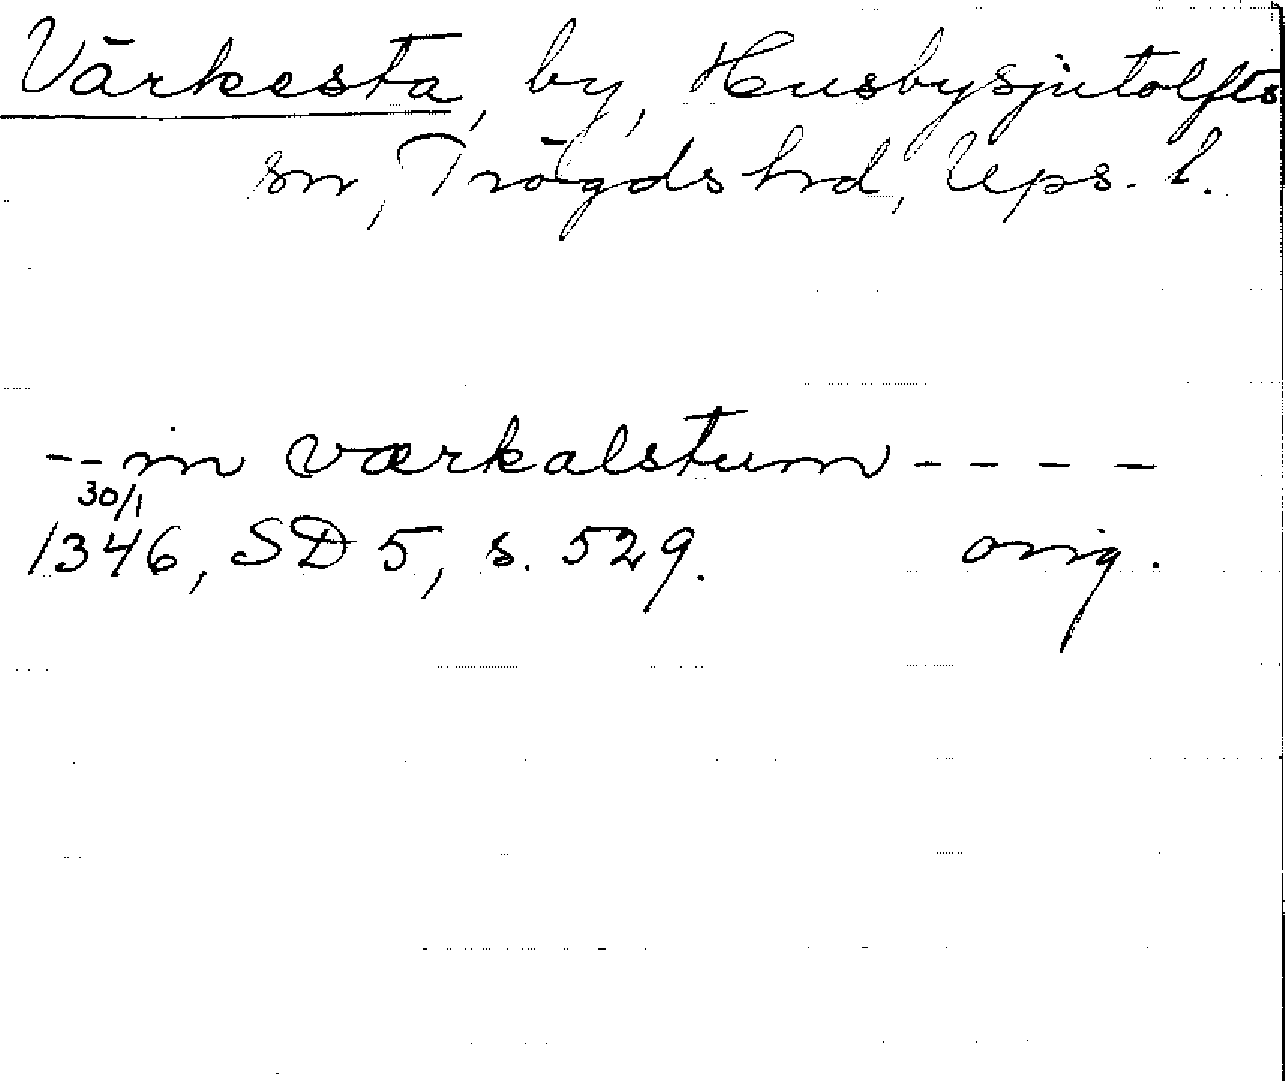 Värkesta, by, Husbysjutolfts
sn, Trögds hrd, Ups. l.
-- in værkalstum ----
30/1
1346, SD 5, s. 529. orig.